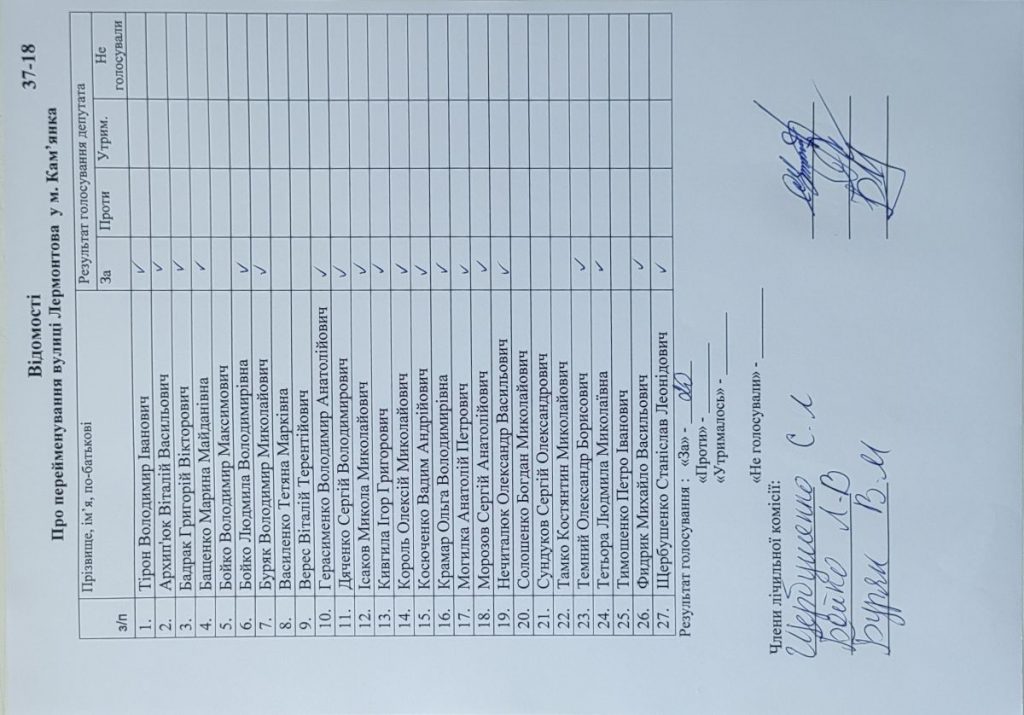 37-18
Відомості
Про перейменування вулиці Лермонтова у м. Кам’янка
з/п Прізвище, ім’я, по-батькові Результат голосування депутата
За Проти Утрим. Не голосували
1. Тірон Володимир Іванович ✓
2. Архип'юк Віталій Васильович ✓
3. Бадрак Григорій Вікторович ✓
4. Бащенко Марина Майданівна ✓
5. Бойко Володимир Максимович
6. Бойко Людмила Володимирівна ✓
7. Буряк Володимир Миколайович ✓
8. Василенко Тетяна Марківна
9. Верес Віталій Терентійович
10. Герасименко Володимир Анатолійович ✓
11. Дяченко Сергій Володимирович ✓
12. Ісаков Микола Миколайович ✓
13. Кивгила Ігор Григорович ✓
14. Король Олексій Миколайович ✓
15. Косюченко Вадим Андрійович ✓
16. Крамар Ольга Володимирівна ✓
17. Могилка Анатолій Петрович ✓
18. Морозов Сергій Анатолійович ✓
19. Нечиталюк Олександр Васильович ✓
20. Солошенко Богдан Миколайович
21. Сундуков Сергій Олександрович
22. Тамко Костянтин Миколайович
23. Темний Олександр Борисович ✓
24. Тетьора Людмила Миколаївна ✓
25. Тимошенко Петро Іванович
26. Фидрик Михайло Васильович ✓
27. Щербушенко Станіслав Леонідович ✓
Результат голосування : «За» - 20
«Проти» -
«Утрималось» -
«Не голосували» -
Члени лічильної комісії:
Щербушенко С.Л
Бойко Л.В
Буряк В.М